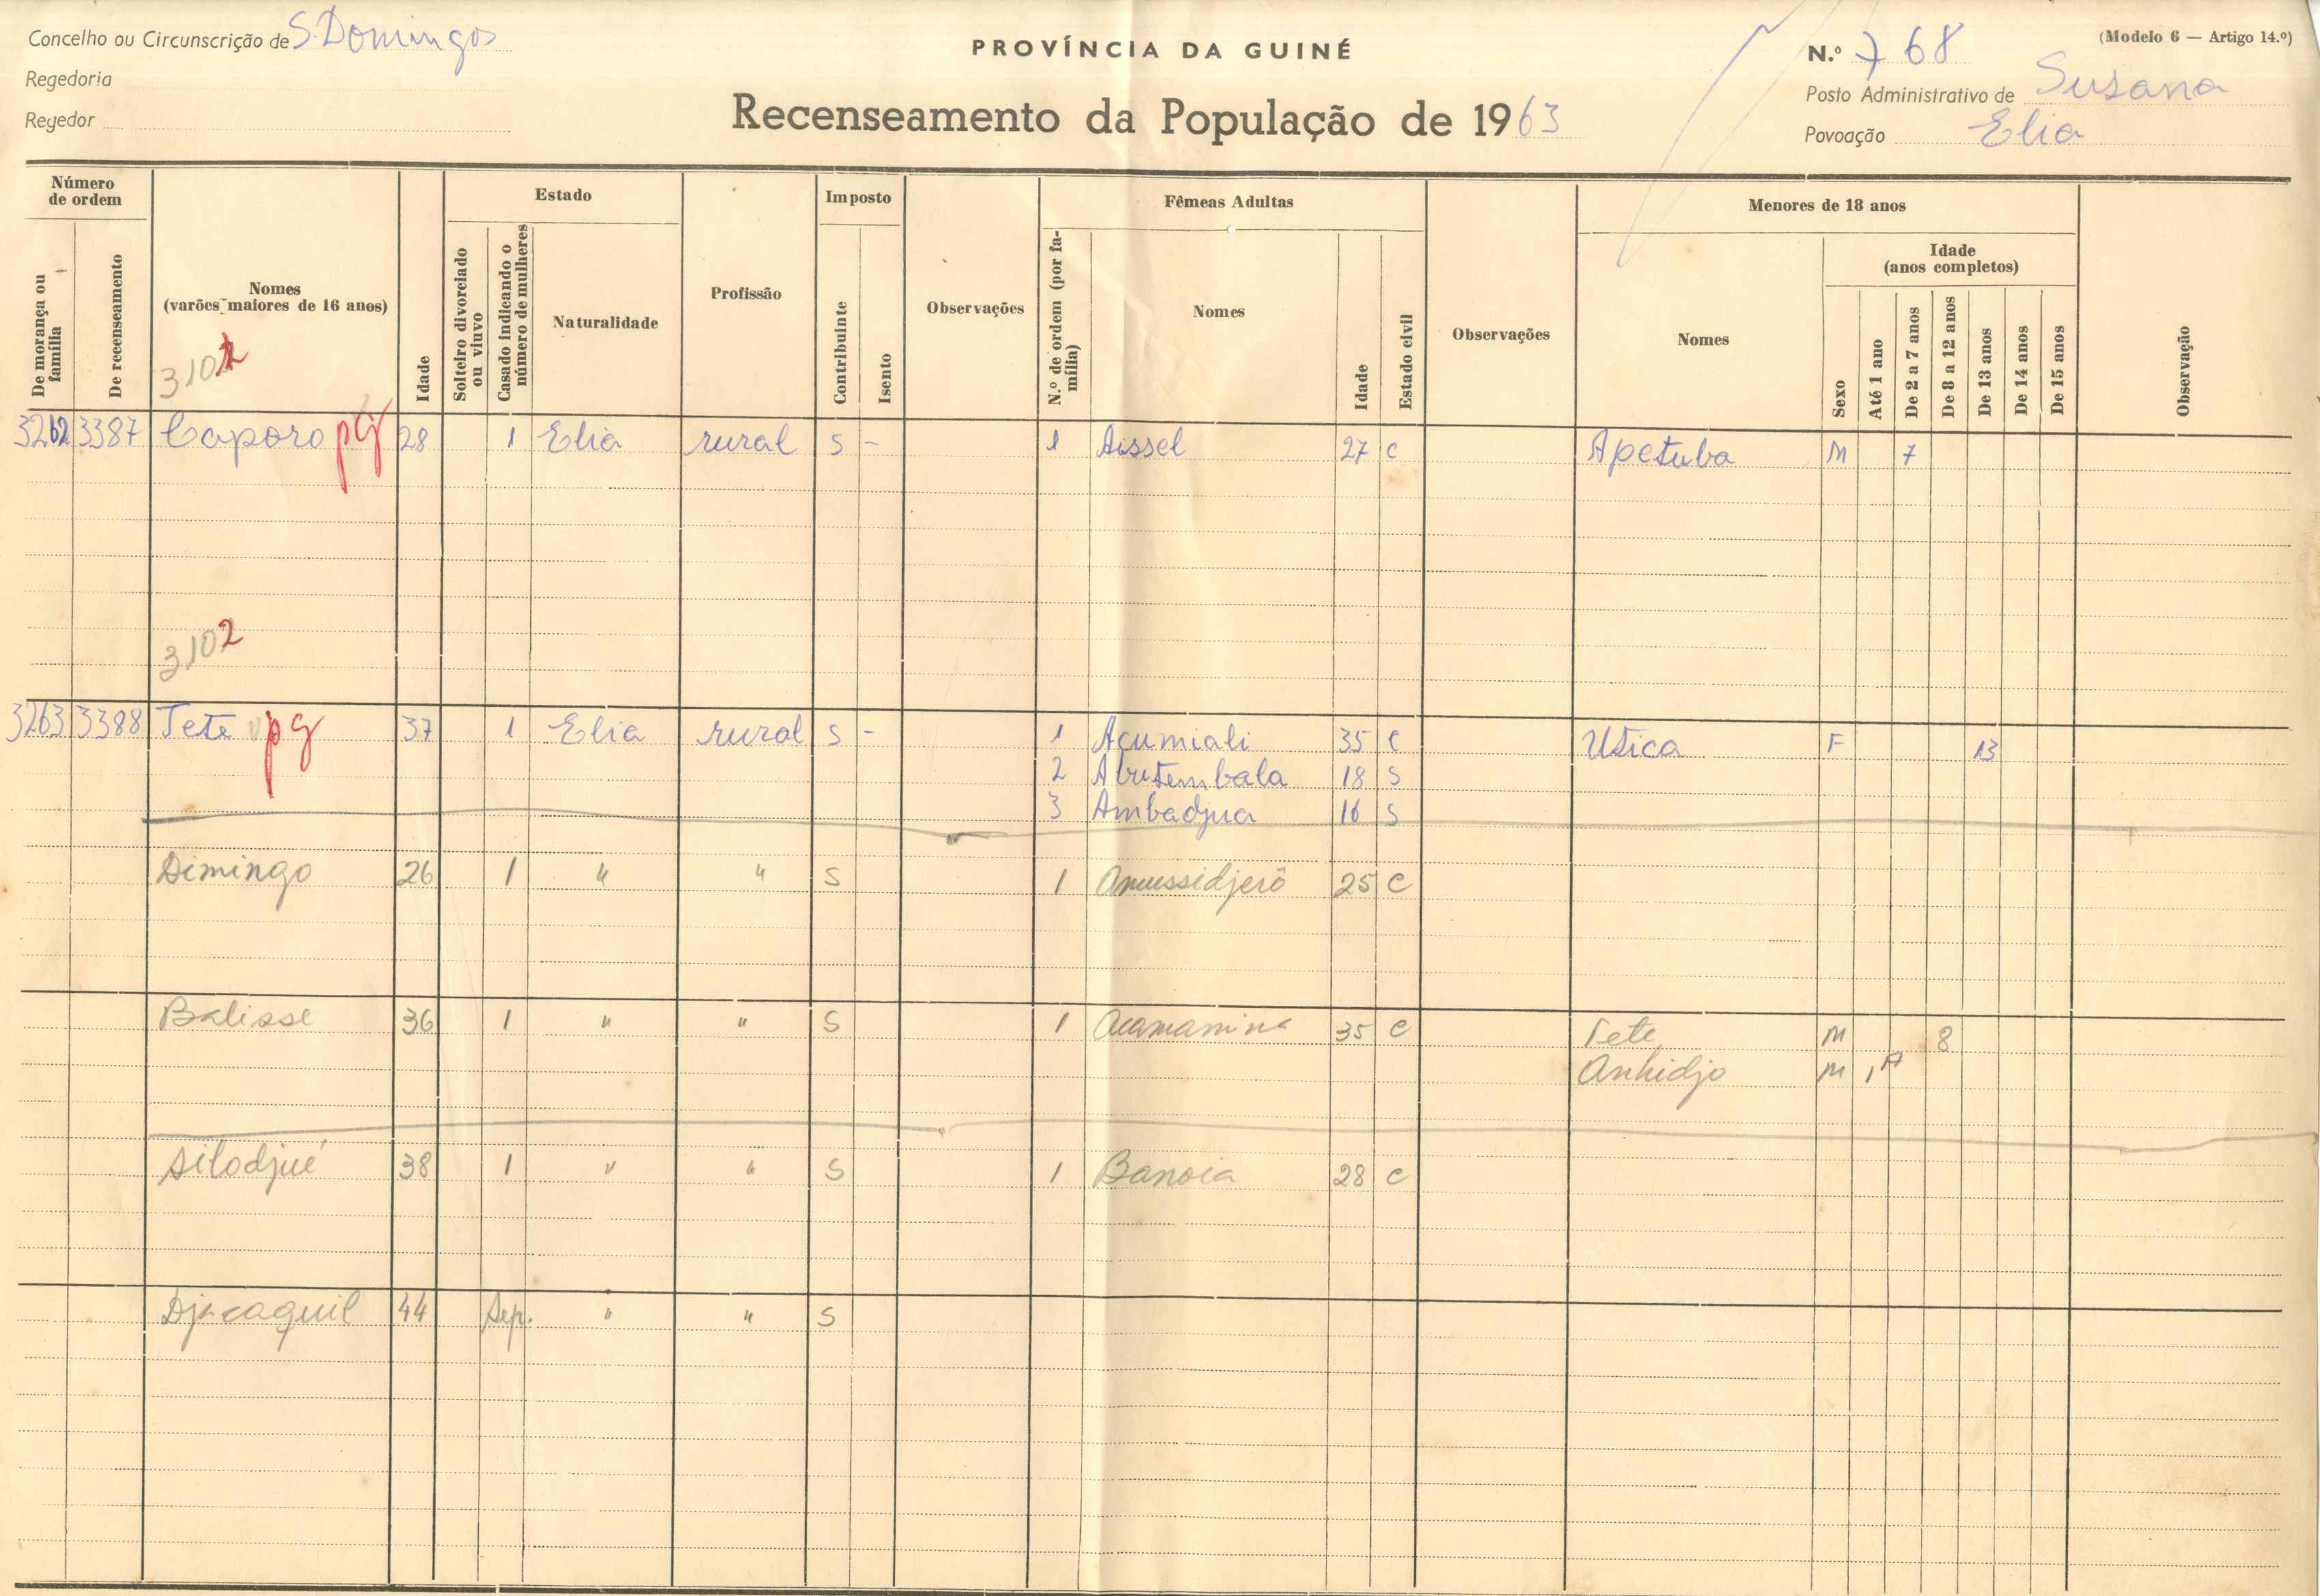 Concelho ou Circunscrição de S. Domingos
PROVÍNCIA DA GUINÉ
N.º 768
(Modelo 6 — Artigo 14.º)
Regedoria
Posto Administrativo de Susana
Regedor
Recenseamento da População de 1963
Povoação Elia
Número de ordem
De morança ou família
De recenseamento
Nomes
(varões maiores de 16 anos)
Idade
Estado
Solteiro divorciado ou viuvo
Casado indicando o número de mulheres
Naturalidade
Profissão
Imposto
Contribuinte
Isento
Observações
Fêmeas Adultas
N.º de ordem (por família)
Nomes
Idade
Estado civil
Observações
Menores de 18 anos
Nomes
Sexo
Idade
(anos completos)
Até 1 ano
De 2 a 7 anos
De 8 a 12 anos
De 13 anos
De 14 anos
De 15 anos
Observação
3262 3387 Caporo pg 28 1 Elia rural S - 1 Aissel 27 C Apetuba M 7
3102
3263 3388 Tete pg 37 1 Elia rural S - 1 Açumiali 35 C Utica F 13
2 Abutembala 18 S
3 Ambadjua 16 S
Dimingo 26 1 " " S 1 Amussidjerô 25 C
Balisse 36 1 " " S 1 Acamamina 35 C Tete M 8
Anhidjo M
Silodjué 38 1 " " S 1 Banoia 28 C
Djacaguil 44 Sep. " " S